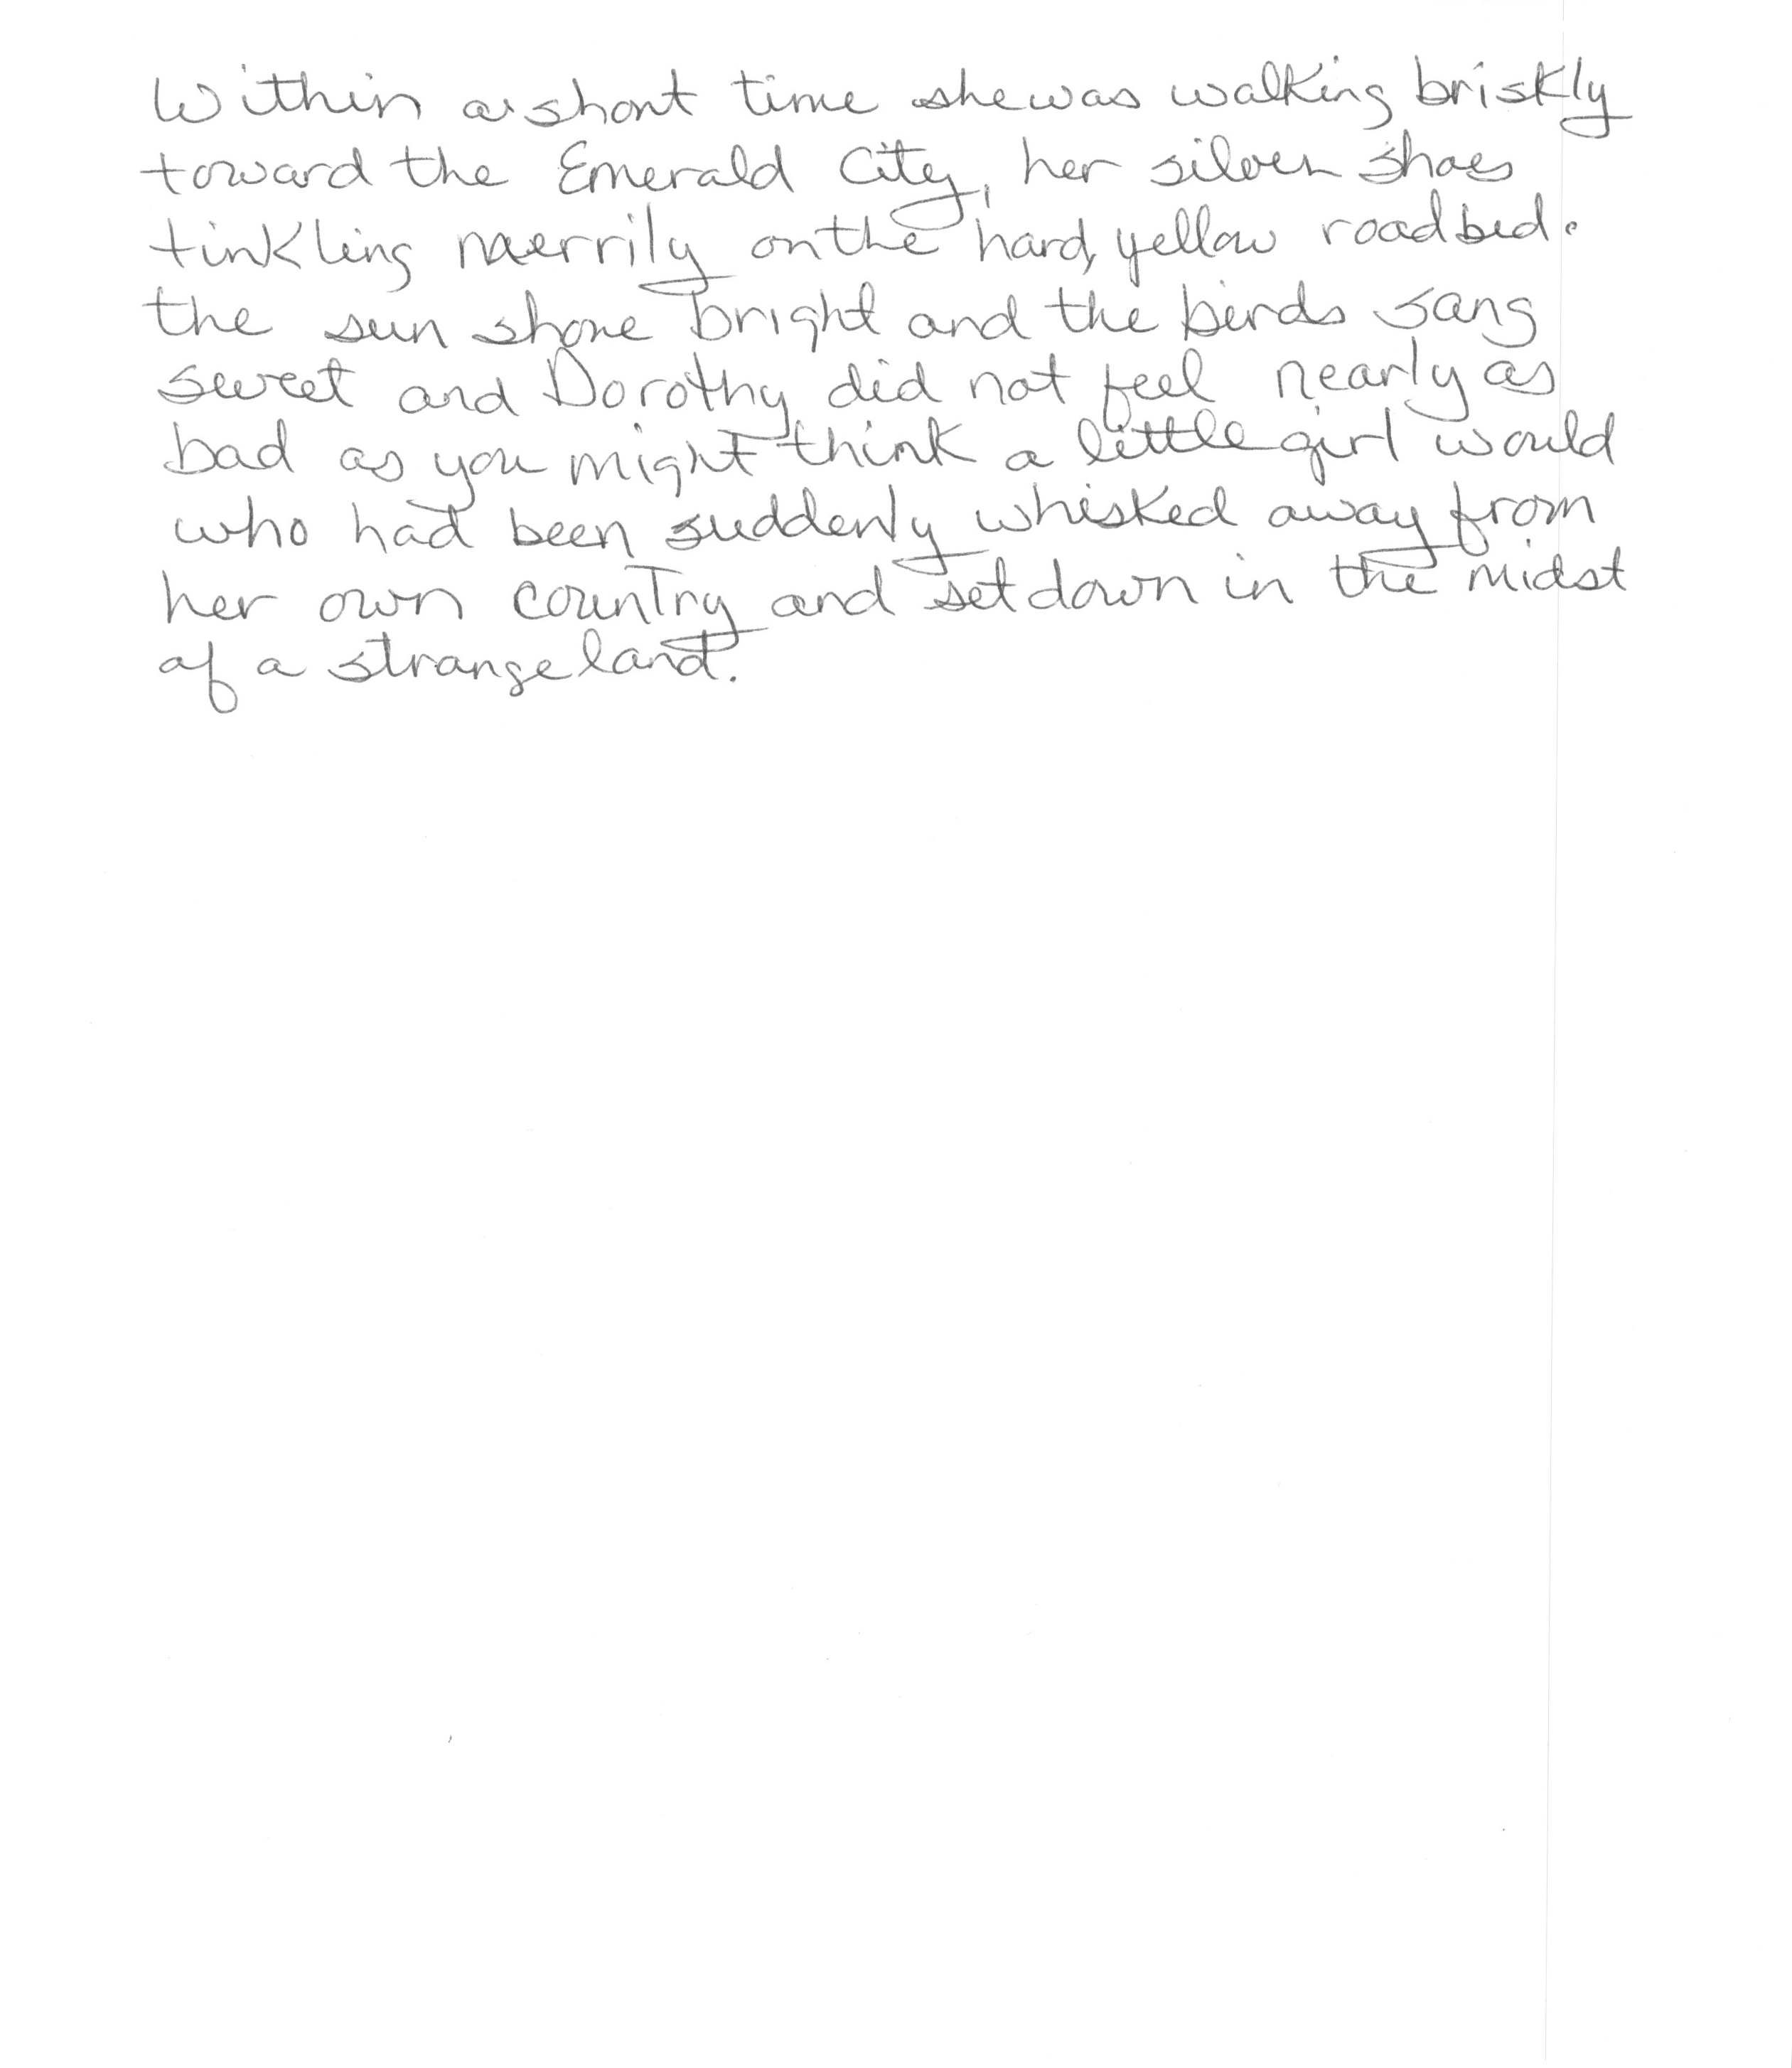 Within a short time she was walking briskly
toward the Emerald City, her silver shoes
tinkling merrily on the hard, yellow roadbed.
the sun shone bright and the birds sang
sweet and Dorothy did not feel nearly as
bad as you might think a little girl would
who had been suddenly whisked away from
her own country and set down in the midst
of a strange land.